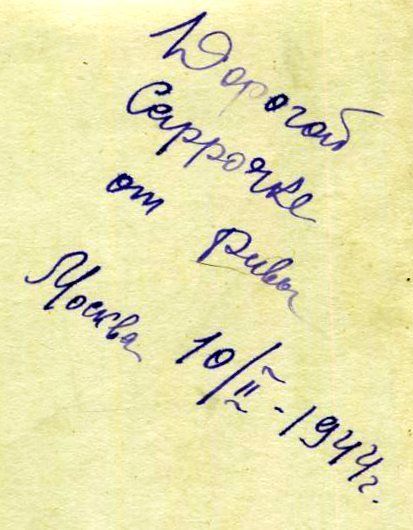 Дорогой
Саррочке
от Ривы
Москва 10/II-1944г.